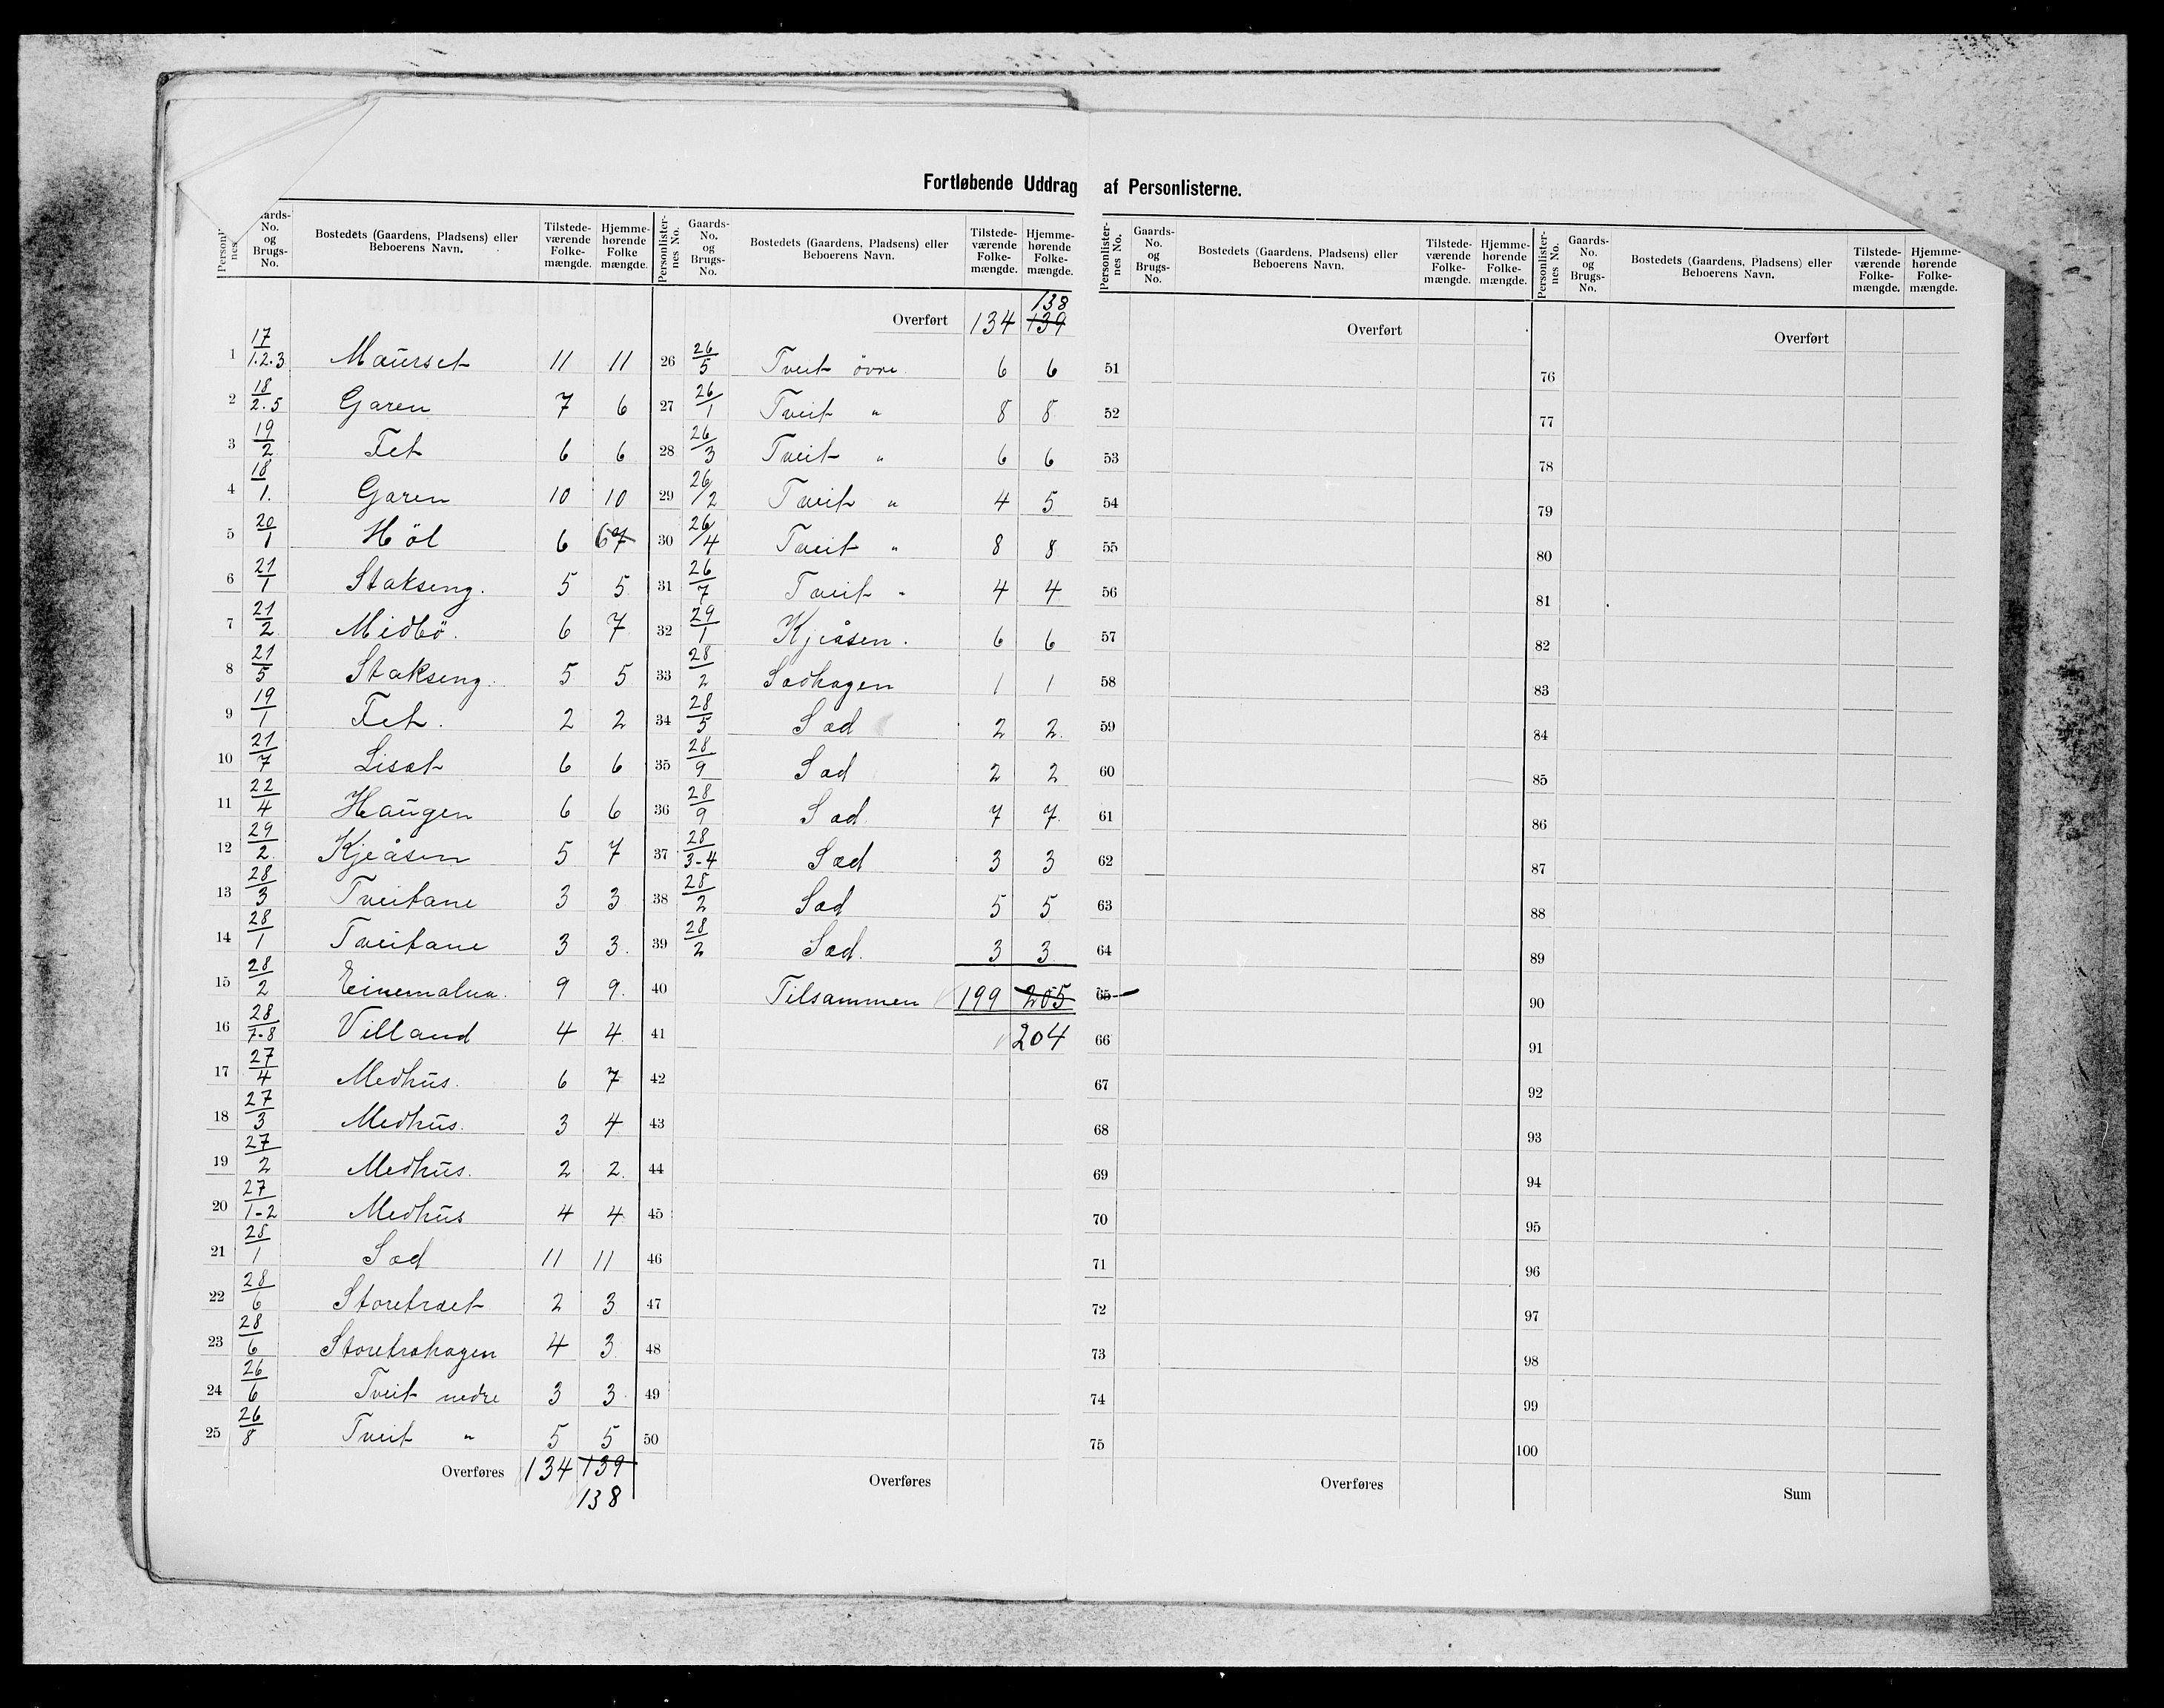 Fortløbende Uddrag af Personlisterne.
Gaards-No. og Brugs-No. | Bostedets (Gaardens, Pladsens) eller Beboerens Navn. | Tilstedeværende Folkemængde. | Hjemmehørende Folkemængde.
1 17/1.2.3 Maurset 11 11
2 18/2.5 Garen 7 6
3 19/2 Fet 6 6
4 18/1. Garen 10 10
5 20/1 Höl 6 6 7
6 21/1 Stakseng. 5 5
7 21/2 Midbö. 6 7
8 21/5 Stakseng. 5 5
9 19/1 Fet. 2 2
10 21/7 Liset 6 6
11 22/4 Haugen 6 6
12 29/2 Kjeåsen 5 7
13 28/3 Tveitane 3 3
14 28/1 Tveitane 3 3.
15 28/2 9 9.
16 28/7-8 Villand 4 4
17 27/4 Medhus. 6 7
18 27/3 Medhus. 3 4
19 27/2 Medhus. 2 2.
20 27/1-2 Medhus 4 4
21 28/1 Sæd 11 11
22 28/6 Storetræet 2 3
23 28/6 Storetræhagen 4 3
24 26/6 Tveit nedre 3 3
25 26/8 Tveit " 5 5
Overføres 134 139
138
Personlisternes No. | Gaards-No. og Brugs-No. | Bostedets (Gaardens, Pladsens) eller Beboerens Navn. | Tilstedeværende Folkemængde. | Hjemmehørende Folkemængde.
138
Overført 134 139
26 26/5 Tveit övre 6 6
27 26/1 Tveit " 8 8
28 26/3 Tveit " 6 6
29 26/2 Tveit " 4 5
30 26/4 Tveit " 8 8
31 26/7 Tveit " 4 4
32 29/1 Kjeåsen. 6 6
33 28/2 Sædhagen 1 1
34 28/5 Sæd 2 2.
35 28/9 Sæd 2 2
36 28/9 Sæd 7 7
37 28/3-4 Sæd 3 3
38 28/2 Sæd 5 5
39 28/2 Sæd. 3 3
40 Tilsammen 199 205
41 204
42
43
44
45
46
47
48
49
50
Overføres
Personlisternes No. | Gaards-No. og Brugs-No. | Bostedets (Gaardens, Pladsens) eller Beboerens Navn. | Tilstedeværende Folkemængde. | Hjemmehørende Folkemængde.
Overført
51
52
53
54
55
56
57
58
59
60
61
62
63
64
65
66
67
68
69
70
71
72
73
74
75
Overføres
Personlisternes No. | Gaards-No. og Brugs-No. | Bostedets (Gaardens, Pladsens) eller Beboerens Navn. | Tilstedeværende Folkemængde. | Hjemmehørende Folkemængde.
Overført
76
77
78
79
80
81
82
83
84
85
86
87
88
89
90
91
92
93
94
95
96
97
98
99
100
Sum